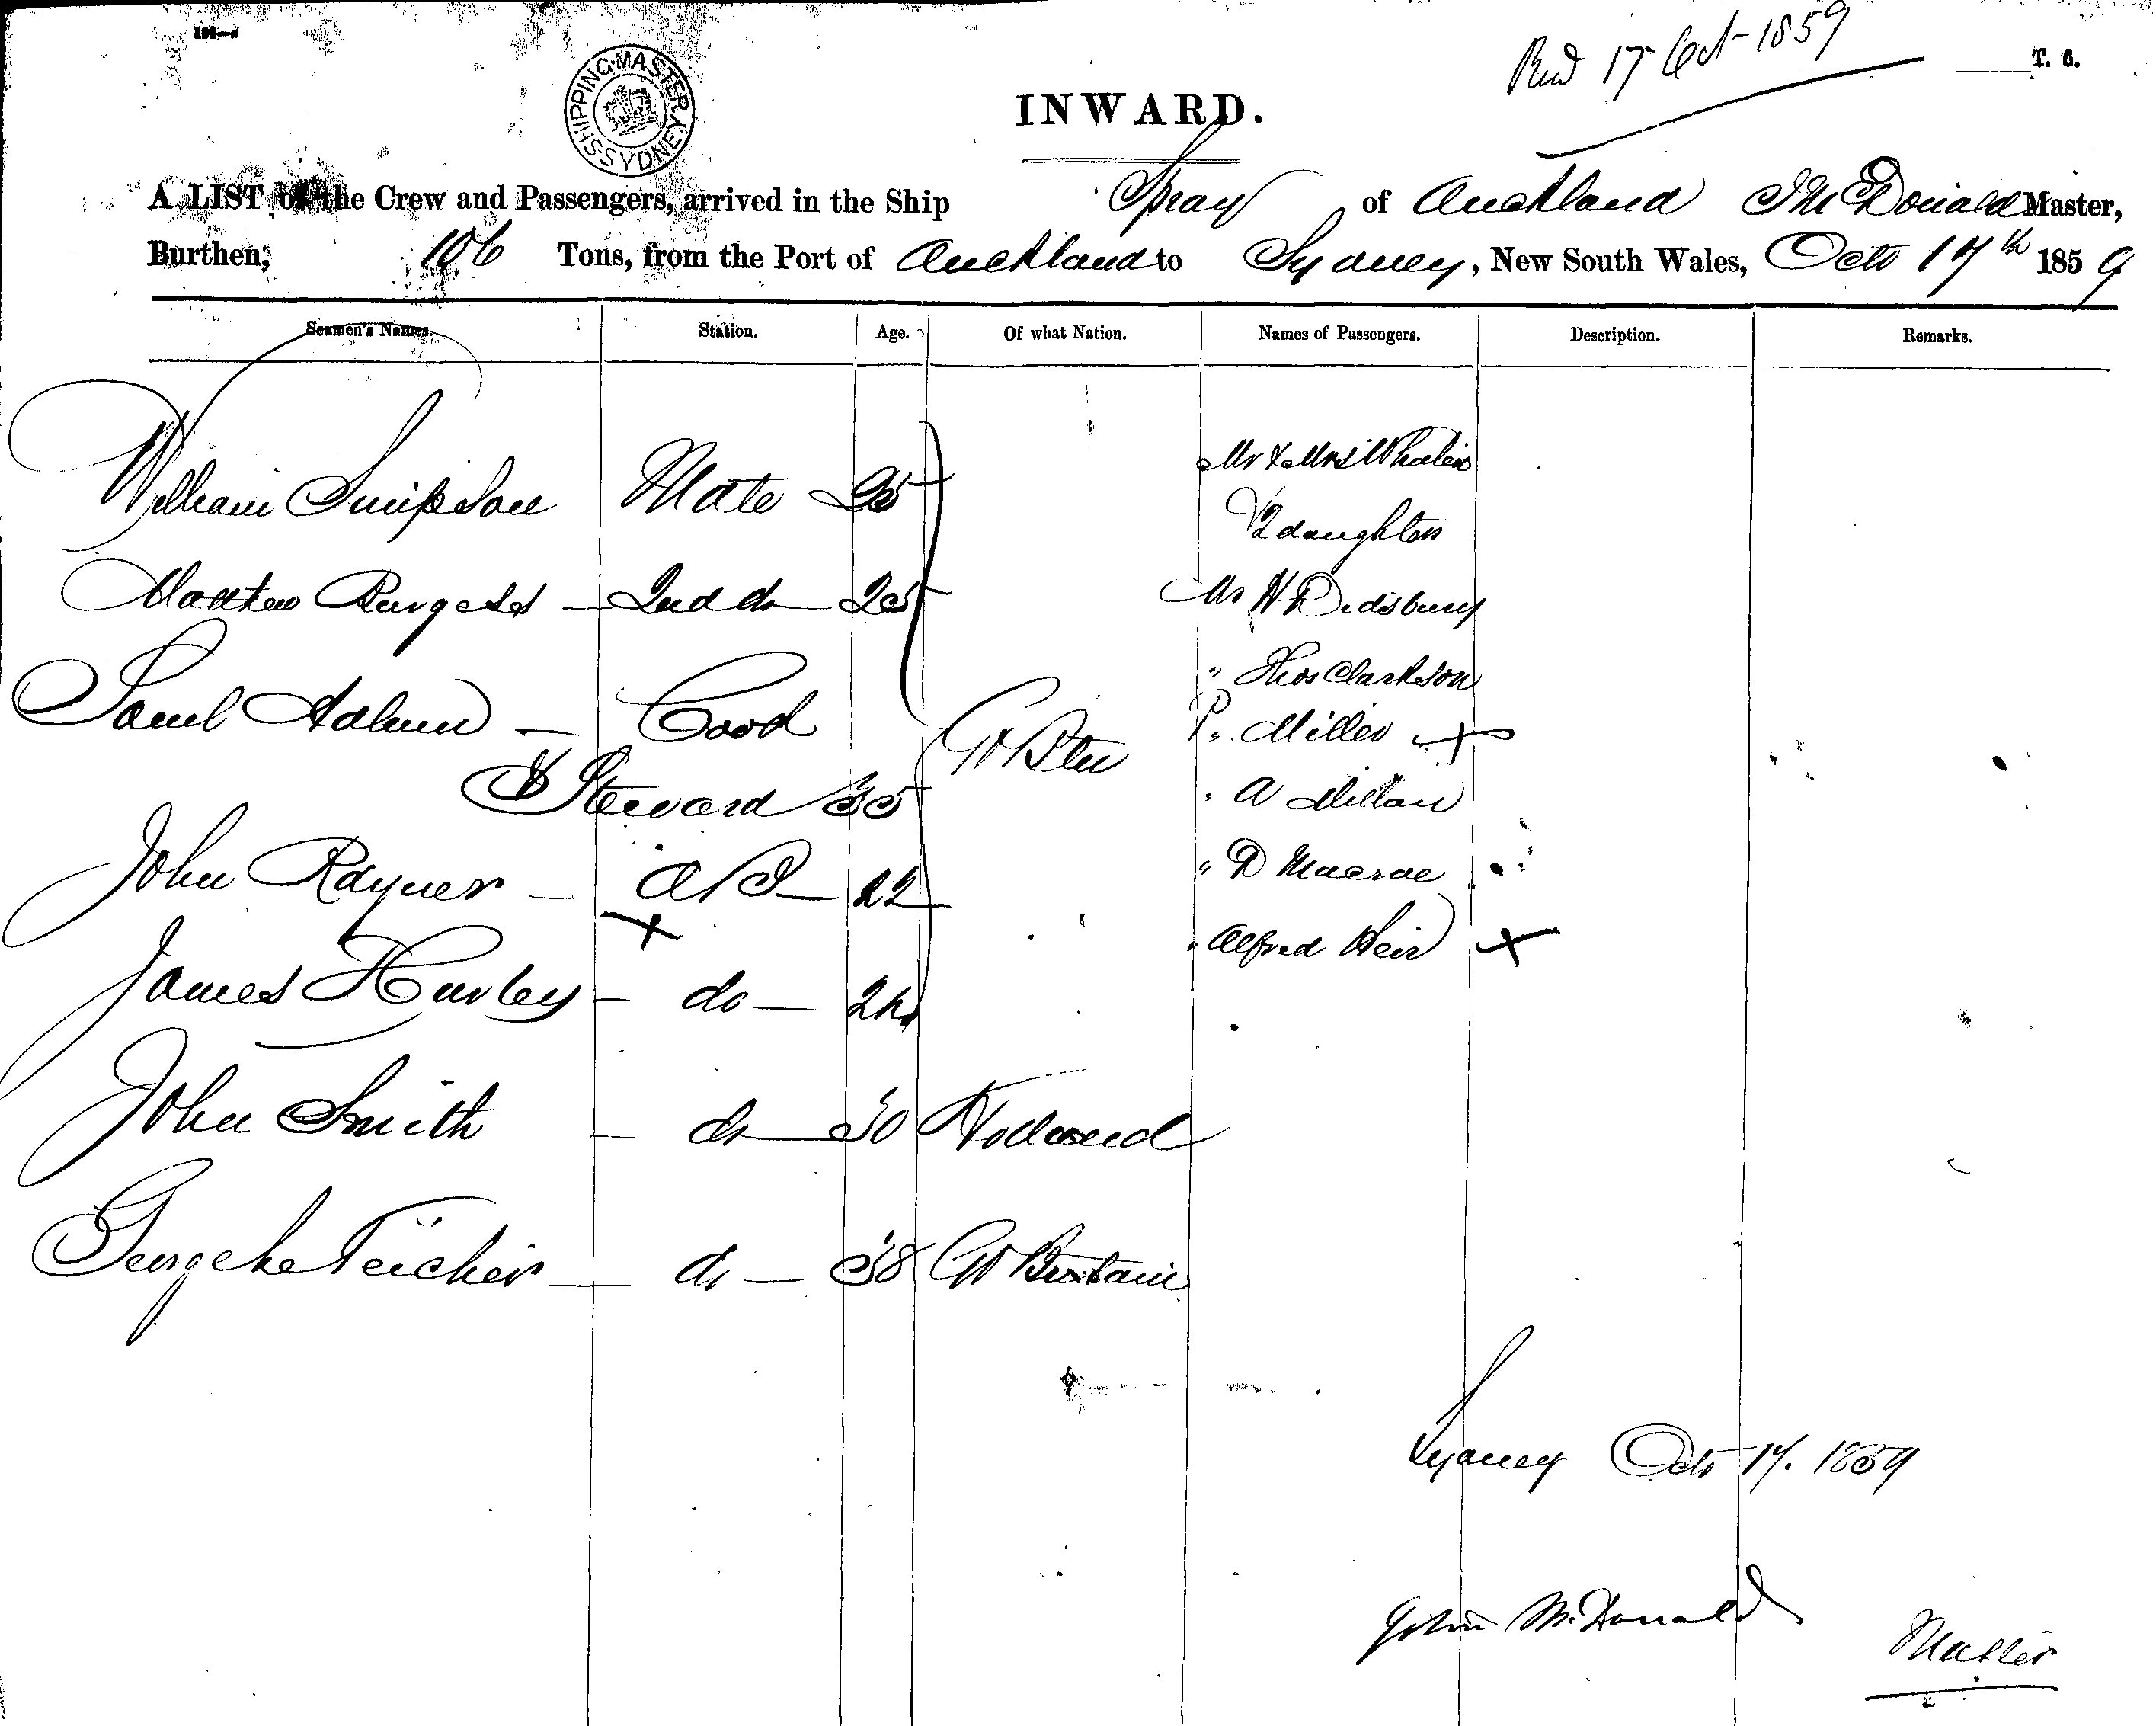 Recd 17 Oct 1859
T. 6.
SHIPPING MASTER SYDNEY
INWARD.
A LIST of the Crew and Passengers, arrived in the Ship Spray of Auckland J McDonald Master,
Burthen, 106 Tons, from the Port of Auckland to Sydney, New South Wales, Octo 17th 1859
Seamen's Names. Station. Age. Of what Nation. Names of Passengers. Description. Remarks.
William Simpson Mate 25
Matthew Burgess — 2nd do — 25
Saml —
& Steward 35
Gt Btn
John Rayner — AB — 22
James Hurley — do — 24
John Smith — do — 30 Holland
George — do — 38 Gt Britain
Mr & Mrs Whalen
& 2 daughters
Mr H Didsbury
" Thos Clarkson
P. " Miller
" A
" D Macrae
" Alfred Weir
Sydney Octo 17. 1859
John McDonald
Master